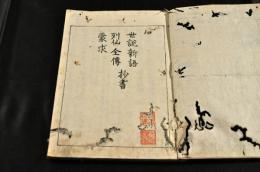 世說新語
列仙全傳 抄書
蒙求